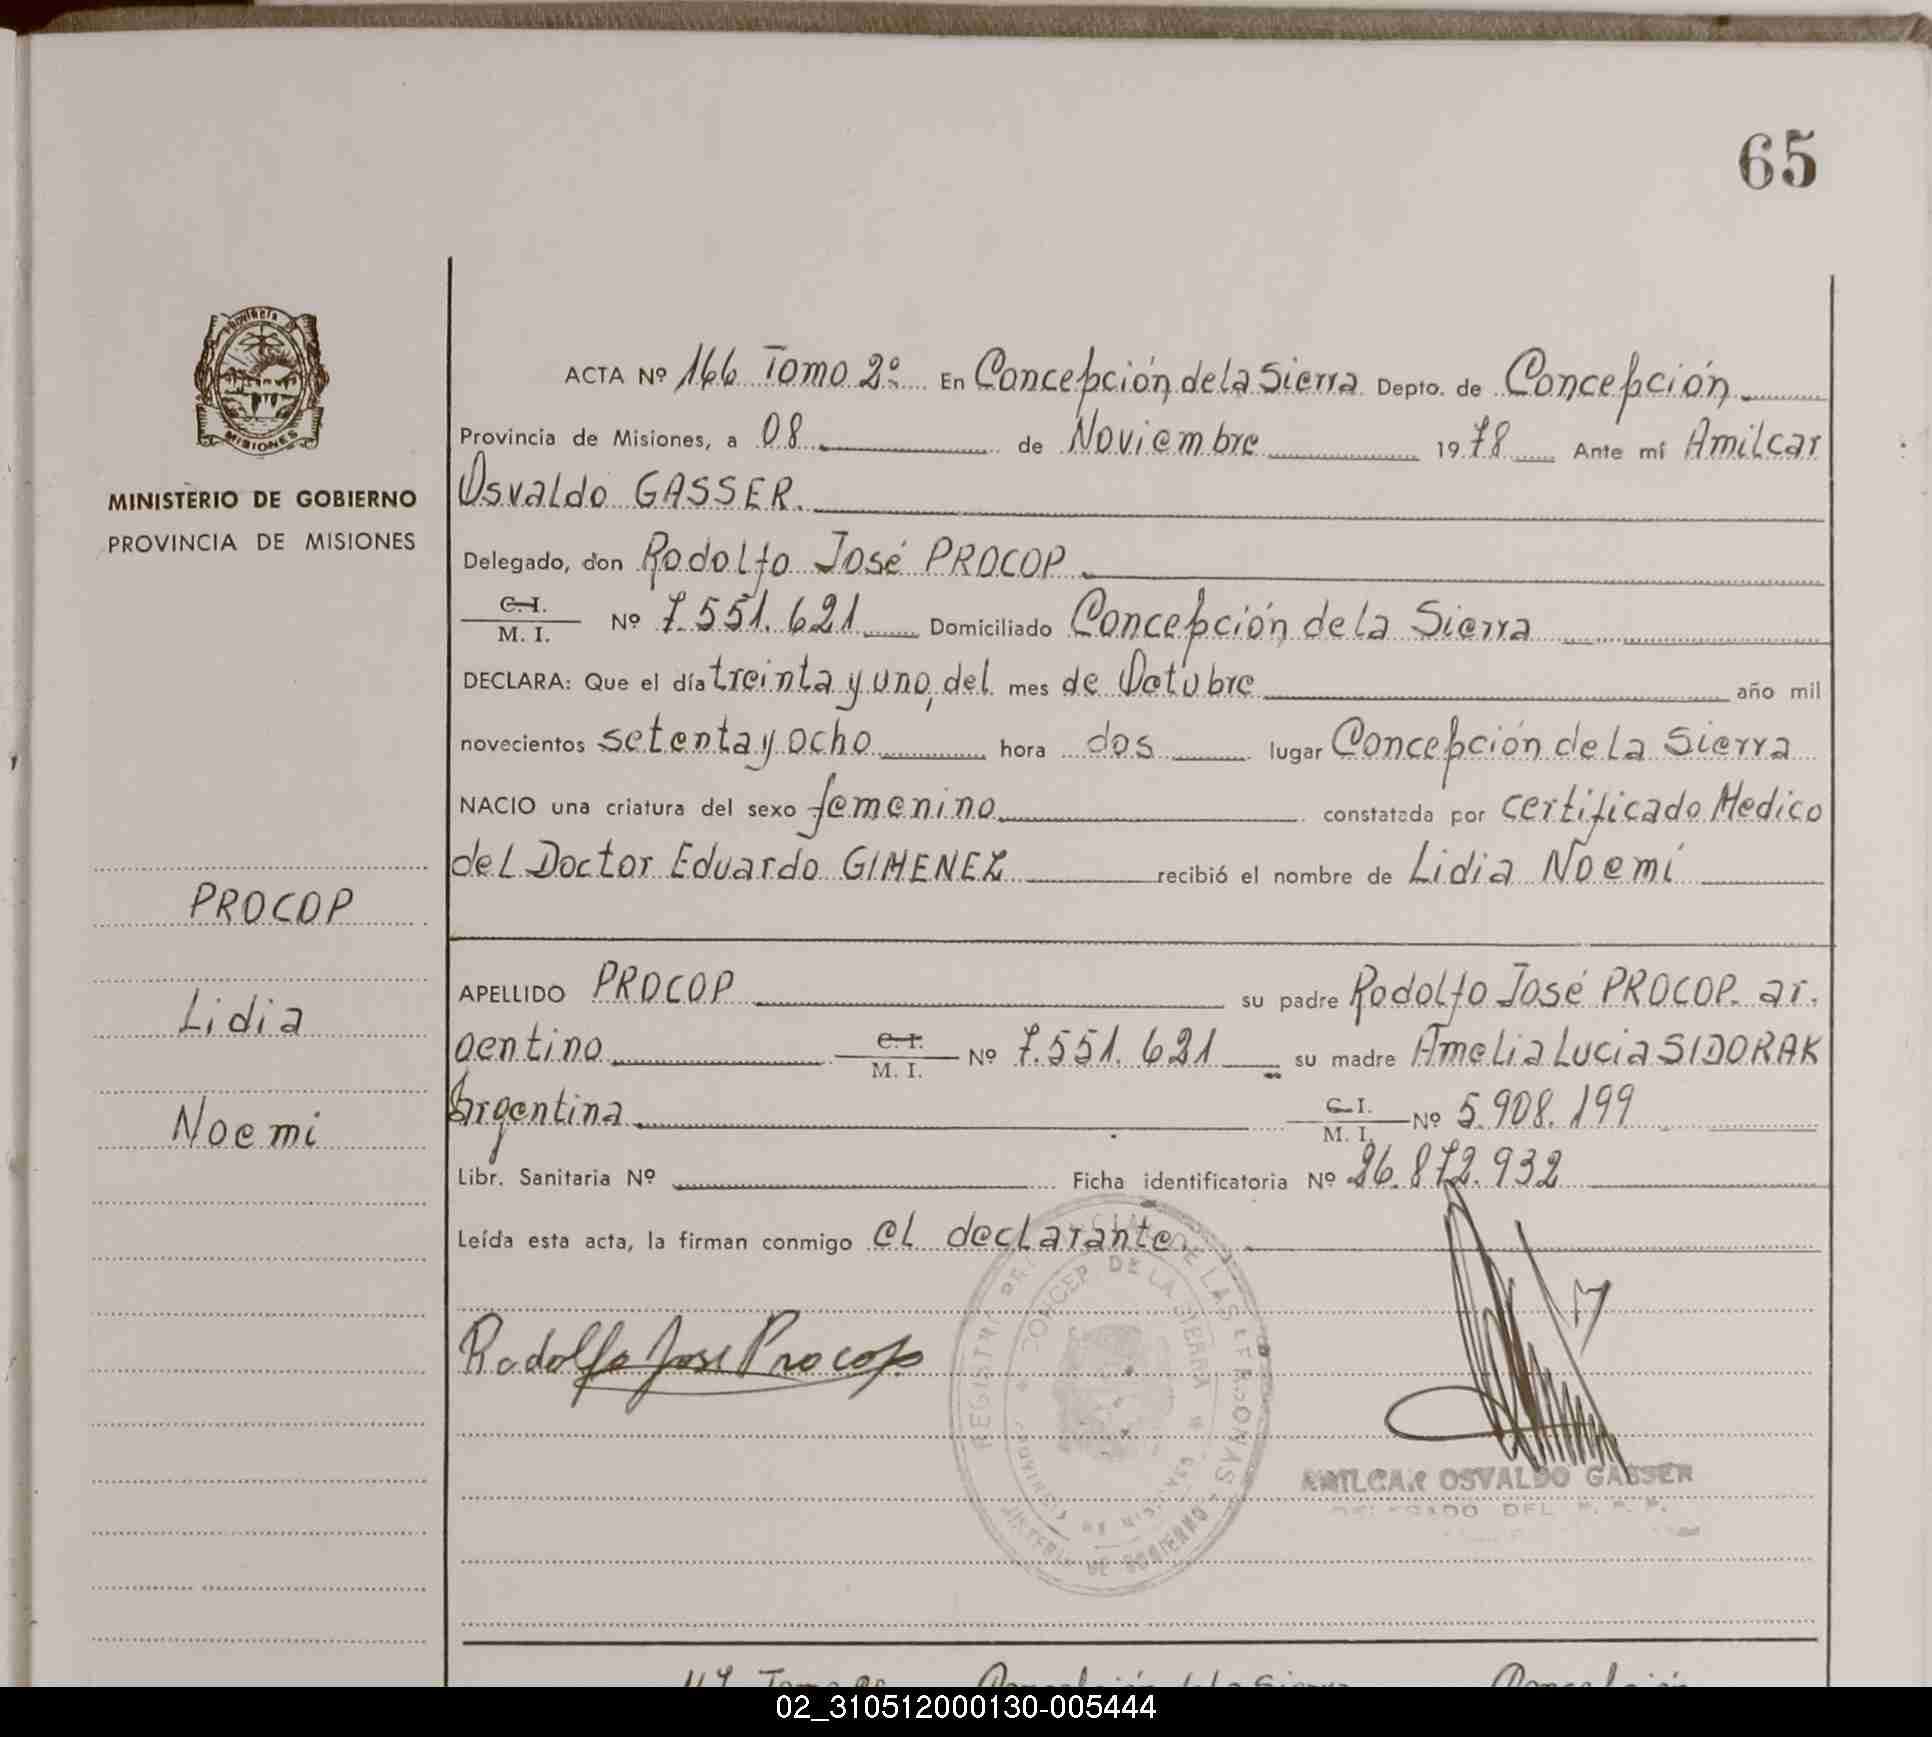 65
Provincia de
MISIONES
MINISTERIO DE GOBIERNO
PROVINCIA DE MISIONES
PROCOP
Lidia
Noemi
ACTA Nº 166 Tomo 2º En Concepción de la Sierra Depto. de Concepción
Provincia de Misiones, a 08 de Noviembre 1978 Ante mí Amilcar
Osvaldo GASSER.
Delegado, don Rodolfo José PROCOP
C. I.
M. I. Nº 7.551.621 Domiciliado Concepción de la Sierra
DECLARA: Que el día treinta y uno, del mes de Octubre año mil
novecientos setenta y ocho hora dos lugar Concepción de la Sierra
NACIO una criatura del sexo femenino constatada por certificado Medico
del Doctor Eduardo GIMENEZ recibió el nombre de Lidia Noemí
APELLIDO PROCOP su padre Rodolfo José PROCOP. ar.
gentino C. I.
M. I. Nº 7.551.621 su madre Amelia Lucia SIDORAK
Argentina C. I.
M. I. Nº 5.908.199
Libr. Sanitaria Nº Ficha identificatoria Nº 26.872.932
Leída esta acta, la firman conmigo el declarante.
Rodolfo Jose Procop
REGISTRO DE LAS PERSONAS
CONCEP. DE LA SIERRA
PROVINCIA DE MISIONES
MINISTERIO DE GOBIERNO
AMILCAR OSVALDO GASSER
DELEGADO DEL
02_310512000130-005444